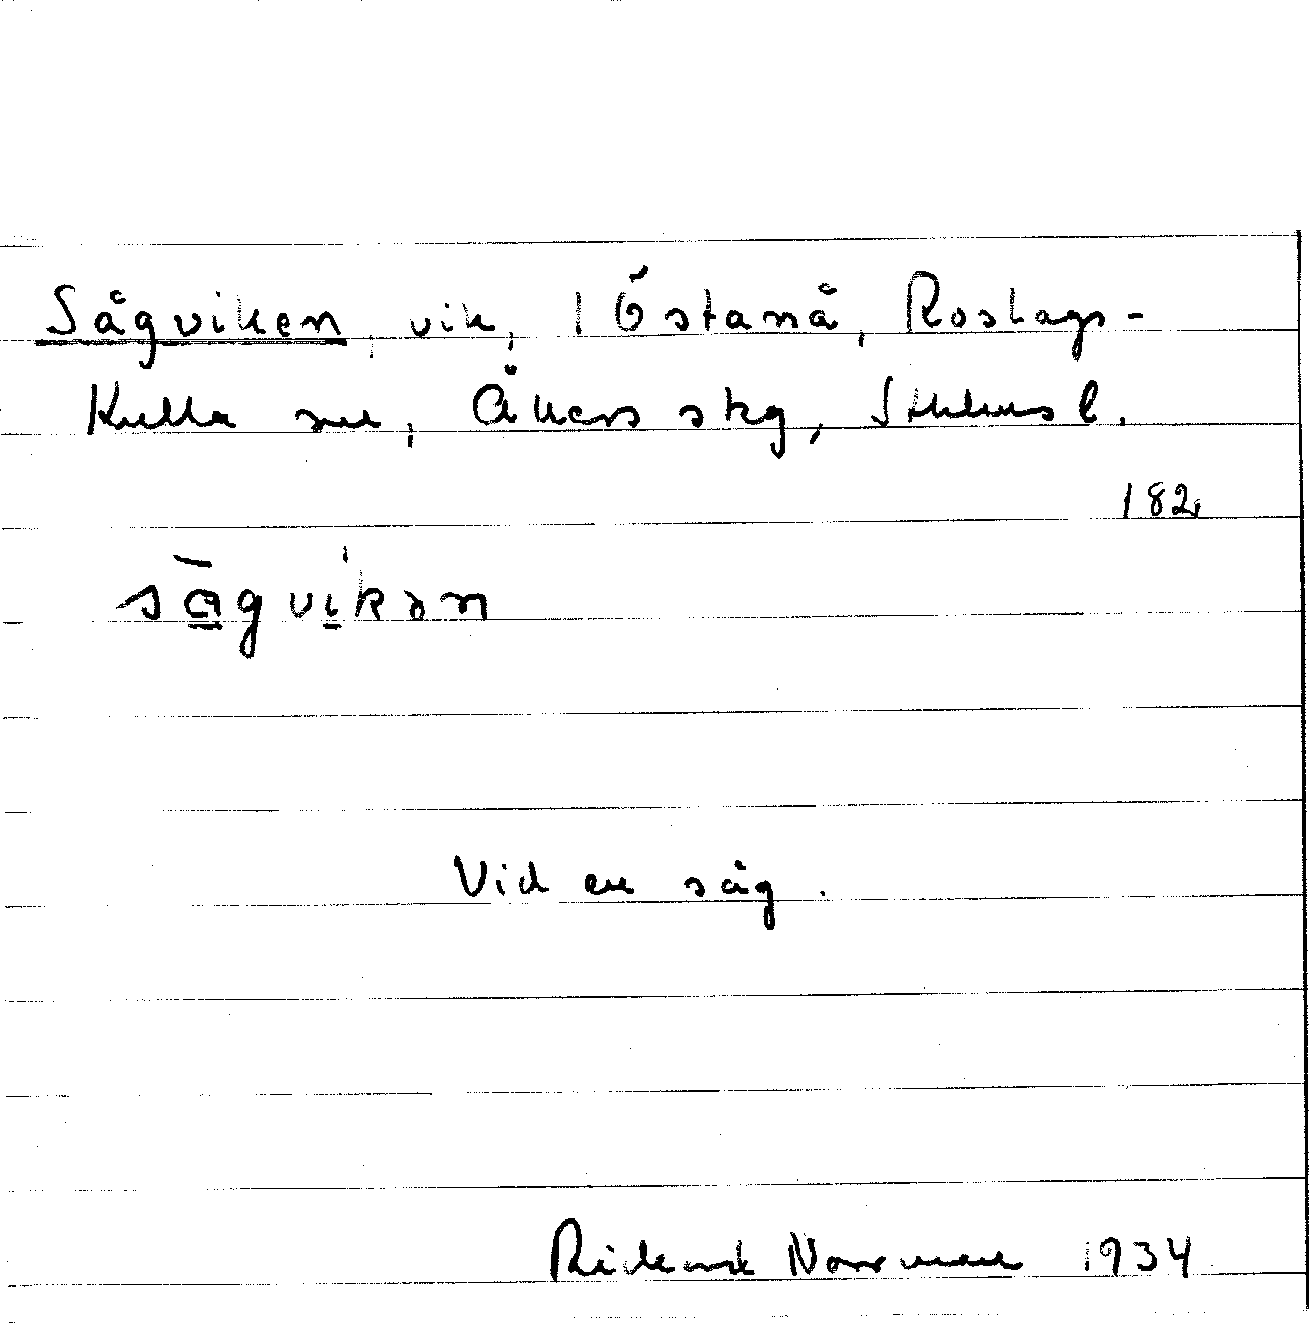 Sågviken, vik, 1 Östanå, Roslags-
Kulla sn, Åkers skg, Sthlms l.
182,
sågvikən
Vid en såg.
Rickard Norrman 1934